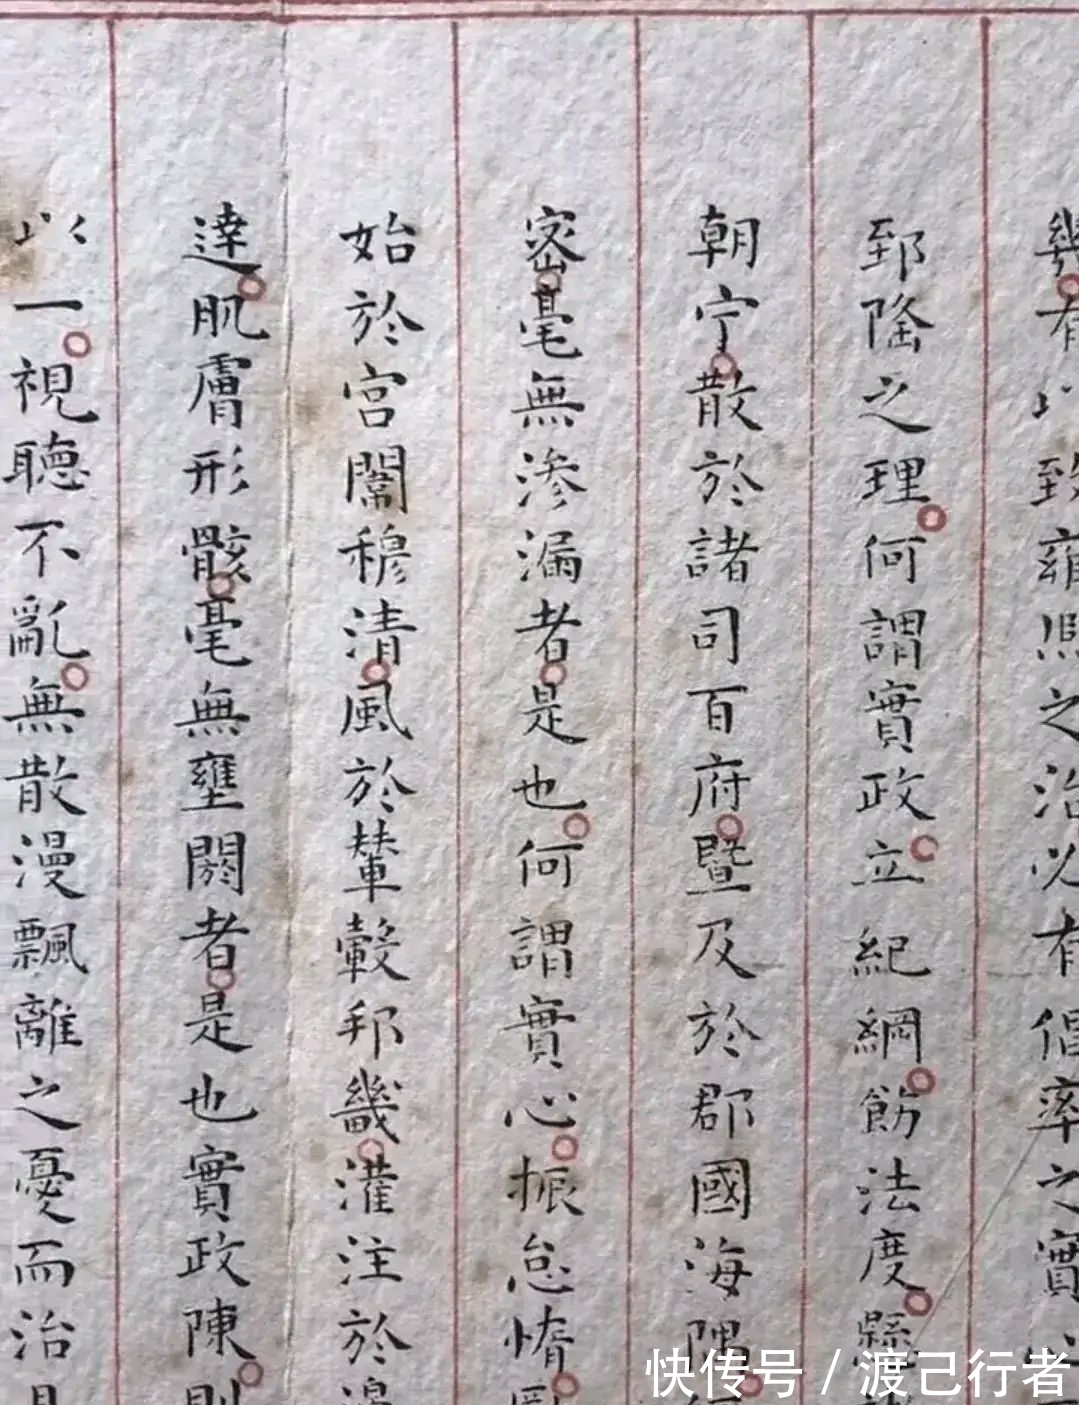 幾有以致雍熙之治必有倡率之實
郅隆之理何謂實政立紀綱飭法度縣
朝宁散於諸司百府暨及於郡國海隅
密毫無滲漏者是也何謂實心振怠惰
始於宮闈穆清風於輦轂邦畿灌注於
達肌膚形骸毫無壅閼者是也實政陳則
以一視聽不亂無散漫飄離之憂而治具
快传号 / 渡己行者